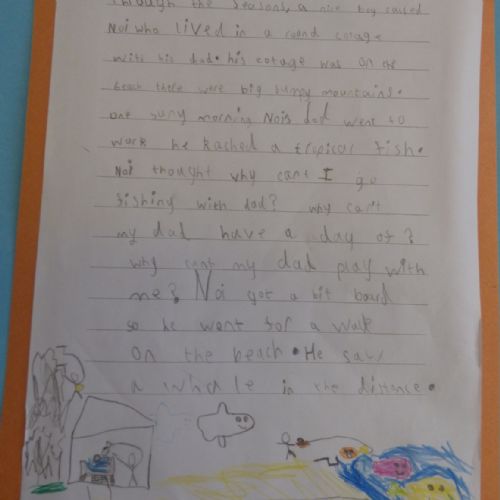 Through the seasons, a nice boy called
Noi who lived in a round cotage
with his dad. his cotage was on the
beach there were big suny mountains.
one suny morning Nois dad went to
work he kached a tropicar fish.
Noi thought why cant I go
fishing with dad? why can't
my dad have a day of?
why cant my dad play with
me? Noi got a bit board
so he went for a walk
on the beach. He saw
a whale in the distance.